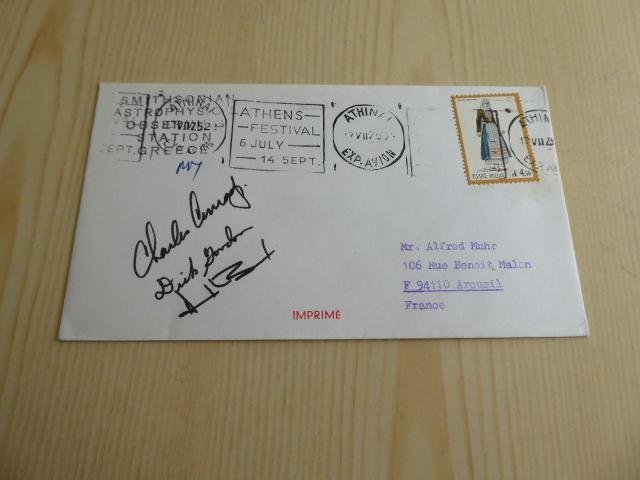 SMITHSONIAN
ASTROPHYSI
OBSE
STATION
GREECE
ATHENS
FESTIVAL
6 JULY
14 SEPT.
ATHINAI
EXP. AVION
ΕΛΛΑΣ-HELLAS 4.50
ATHINAI
SEPT.
Charles Conrad
Dick Gordon
Mr. Alfred Muhr
106 Rue Benoit Malon
F 94110 Arcueil
France
IMPRIMÉ